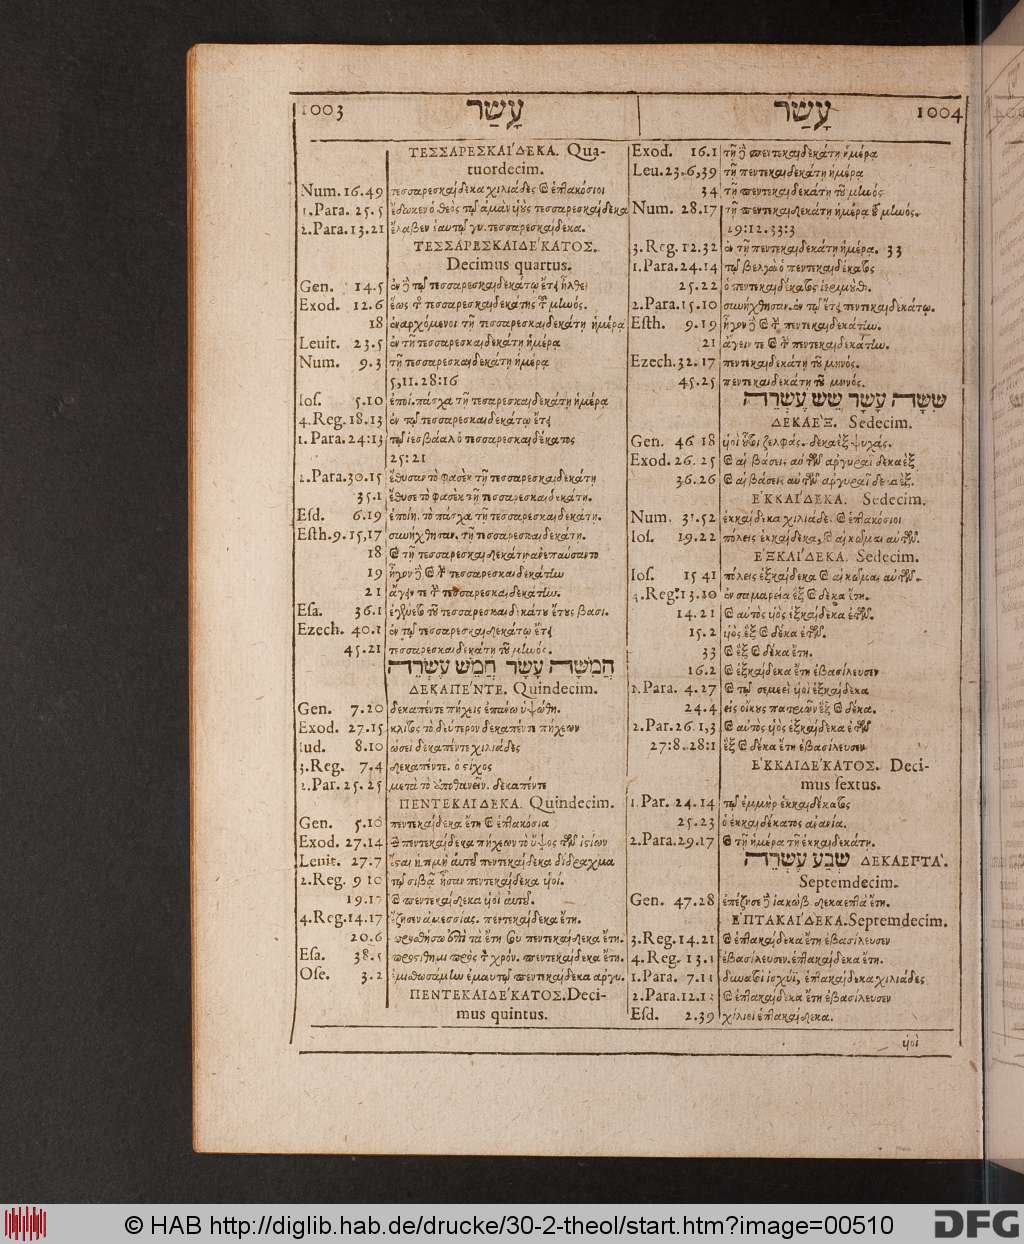 1003 עָשַׂר
ΤΕΣΣΑΡΕΣΚΑΊΔΕΚΑ. Qua-
tuordecim.
Num. 16.49 τεσσαρεσκαίδεκα χιλιάδες καὶ ἑπτακόσιοι
1. Para. 25.5 ἔδωκεν ὁ θεὸς τῷ ἀμὰν υἱοὺς τεσσαρεσκαίδεκα
2. Para. 13.21 ἔλαβεν ἑαυτῷ γυ. τεσσαρεσκαίδεκα.
ΤΕΣΣΑΡΕΣΚΑΙΔΈΚΑΤΟΣ.
Decimus quartus.
Gen. 14.5 ἐν δὲ τῷ τεσσαρεσκαιδεκάτῳ ἔτει ἦλθεν
Exod. 12.6 ἕως τῆς τεσσαρεσκαιδεκάτης τοῦ μηνός.
18 ἐναρχόμενοι τῇ τεσσαρεσκαιδεκάτῃ ἡμέρᾳ
Leuit. 23.5 ἐν τῇ τεσσαρεσκαιδεκάτῃ ἡμέρᾳ
Num. 9.3 τῇ τεσσαρεσκαιδεκάτῃ ἡμέρᾳ
5,11. 28:16
Ios. 5.10 ἐποί. πάσχα τῇ τεσαρεσκαιδεκάτῃ ἡμέρᾳ
4. Reg. 18.13 ἐν τῷ τεσσαρεσκαιδεκάτῳ ἔτει
1. Para. 24:13 τῷ ἰεσβάαλ ὁ τεσσαρεσκαιδέκατος
25:21
2. Para. 30.15 ἔθυσαν τὸ φασὲκ τῇ τεσσαρεσκαιδεκάτῃ
35.1 ἔθυσε τὸ φασὲκ τῇ τεσσαρεσκαιδεκάτῃ.
Esd. 6.19 ἐποίη. τὸ πάσχα τῇ τεσσαρεσκαιδεκάτῃ.
Esth. 9.15,17 συνήχθησαν. τῇ τεσσαρεσκαιδεκάτῃ.
18 καὶ τῇ τεσσαρεσκαιδεκάτῃ ἀνεπαύσαντο
19 ἦγον δὲ καὶ τὴν τεσσαρεσκαιδεκάτην
21 ἄγειν τε τὴν τεσσαρεσκαιδεκάτην.
Esa. 36.1 ἐγένετο τοῦ τεσσαρεσκαιδεκάτου ἔτους βασι.
Ezech. 40.1 ἐν τῷ τεσσαρεσκαιδεκάτῳ ἔτει
45.21 τεσσαρεσκαιδεκάτῃ τοῦ μηνός.
חֲמִשָּׁה עָשָׂר חֲמֵשׁ עֶשְׂרֵה
ΔΕΚΑΠΈΝΤΕ. Quindecim.
Gen. 7.20 δεκαπέντε πήχεις ἐπάνω ὑψώθη.
Exod. 27.15 κλίτος τὸ δεύτερον δεκαπέντε πήχεων
Iud. 8.10 ὡσεὶ δεκαπέντε χιλιάδες
3. Reg. 7.4 δεκαπέντε. ὁ στίχος
2. Par. 25.25 μετὰ τὸ ἀποθανεῖν. δεκαπέντε
ΠΕΝΤΕΚΑΙΔΕΚΑ. Quindecim.
Gen. 5.10 πεντεκαίδεκα ἔτη καὶ ἑπτακόσια
Exod. 27.14 καὶ πεντεκαίδεκα πήχεων τὸ ὕψος τῶν ἱστίων
Leuit. 27.7 ἔσται ἡ τιμὴ αὐτοῦ πεντεκαίδεκα δίδραχμα
2. Reg. 9 10 τῷ σιβᾷ ἦσαν πεντεκαίδεκα υἱοί.
19.17 καὶ πεντεκαίδεκα υἱοὶ αὐτοῦ.
4. Reg. 14.17 ἔζησεν ἀμεσσίας. πεντεκαίδεκα ἔτη.
20.6 προσθήσω ἐπὶ τὰ ἔτη σου πεντεκαίδεκα ἔτη.
Esa. 38.5 προστίθημι πρὸς τὸν χρόν. πεντεκαίδεκα ἔτη.
Ose. 3.2 ἐμισθωσάμην ἐμαυτῷ πεντεκαίδεκα ἀργυ.
ΠΕΝΤΕΚΑΙΔΈΚΑΤΟΣ. Deci-
mus quintus.
עָשַׂר 1004
Exod. 16.1 τῇ δὲ πεντεκαιδεκάτῃ ἡμέρᾳ
Leu. 23.6,39 τῇ πεντεκαιδεκάτῃ ἡμέρᾳ
34 τῇ πεντεκαιδεκάτῃ τοῦ μηνός
Num. 28.17 τῇ πεντεκαιδεκάτῃ ἡμέρᾳ τοῦ μηνός.
29:12. 33:3
3. Reg. 12.32 ἐν τῇ πεντεκαιδεκάτῃ ἡμέρᾳ. 33
1. Para. 24.14 τῷ βελγὰ ὁ πεντεκαιδέκατος
25.22 ὁ πεντεκαιδέκατος ἱεριμούθ.
2. Para. 15.10 συνήχθησαν. ἐν τῷ ἔτει πεντεκαιδεκάτῳ.
Esth. 9.19 ἦγον δὲ καὶ τὴν πεντεκαιδεκάτην.
21 ἄγειν τε καὶ τὴν πεντεκαιδεκάτην.
Ezech. 32.17 πεντεκαιδεκάτῃ τοῦ μηνός.
45.25 πεντεκαιδεκάτῃ τοῦ μηνός.
שִׁשָּׁה עָשָׂר שֵׁשׁ עֶשְׂרֵה
ΔΕΚΑῈΞ. Sedecim.
Gen. 46 18 υἱοὶ οὗτοι ζελφάς. δεκαὲξ ψυχάς.
Exod. 26. 25 καὶ αἱ βάσεις αὐτῶν ἀργυραῖ δεκαὲξ
36.26 καὶ αἱ βάσεις αὐτῶν ἀργυραῖ δεκαέξ.
ΕΚΚΑΊΔΕΚΑ. Sedecim.
Num. 31.52 ἑκκαίδεκα χιλιάδες καὶ ἑπτακόσιοι
Ios. 19.22 πόλεις ἑκκαίδεκα, καὶ αἱ κῶμαι αὐτῶν.
ΕΞΚΑΊΔΕΚΑ. Sedecim.
Ios. 15 41 πόλεις ἑξκαίδεκα καὶ αἱ κῶμαι αὐτῶν.
4. Reg. 13.10 ἐν σαμαρείᾳ ἓξ καὶ δέκα ἔτη.
14.21 καὶ αὐτὸς υἱὸς ἑξκαίδεκα ἐτῶν.
15.2 υἱὸς ἓξ καὶ δέκα ἐτῶν.
33 καὶ ἓξ καὶ δέκα ἔτη.
16.2 καὶ ἑξκαίδεκα ἔτη ἐβασίλευσεν
1. Para. 4.27 καὶ τῷ σεμεεὶ υἱοὶ ἑξκαίδεκα
24.4 εἰς οἴκους πατριῶν ἓξ καὶ δέκα.
2. Par. 26 1,3 καὶ αὐτὸς υἱὸς ἑξκαίδεκα ἐτῶν
27:8. 28:1 ἓξ καὶ δέκα ἔτη ἐβασίλευσεν
ΕΚΚΑΙΔΈΚΑΤΟΣ. Deci-
mus sextus.
1. Par. 24.14 τῷ ἐμμὴρ ἑκκαιδέκατος
25.23 ὁ ἑκκαιδέκατος ἀνανία.
2. Para. 29.17 καὶ τῇ ἡμέρᾳ τῇ ἑκκαιδεκάτῃ.
שְׁבַע עֶשְׂרֵה ΔΕΚΑΕΡΤᾺ.
Septemdecim.
Gen. 47.28 ἐπέζησε δὲ ἰακὼβ δεκαεπτὰ ἔτη.
ΕΠΤΑΚΑΊΔΕΚΑ. Septemdecim.
3. Reg. 14.21 καὶ ἑπτακαίδεκα ἔτη ἐβασίλευσεν
4. Reg. 13.1 ἐβασίλευσεν. ἑπτακαίδεκα ἔτη.
1. Para. 7.11 δυνατοὶ ἰσχύϊ, ἑπτακαίδεκα χιλιάδες
2. Para. 12.13 καὶ ἑπτακαίδεκα ἔτη ἐβασίλευσεν
Esd. 2.39 χίλιοι ἑπτακαίδεκα.
υἱοὶ
© HAB http://diglib.hab.de/drucke/30-2-theol/start.htm?image=00510
DFG